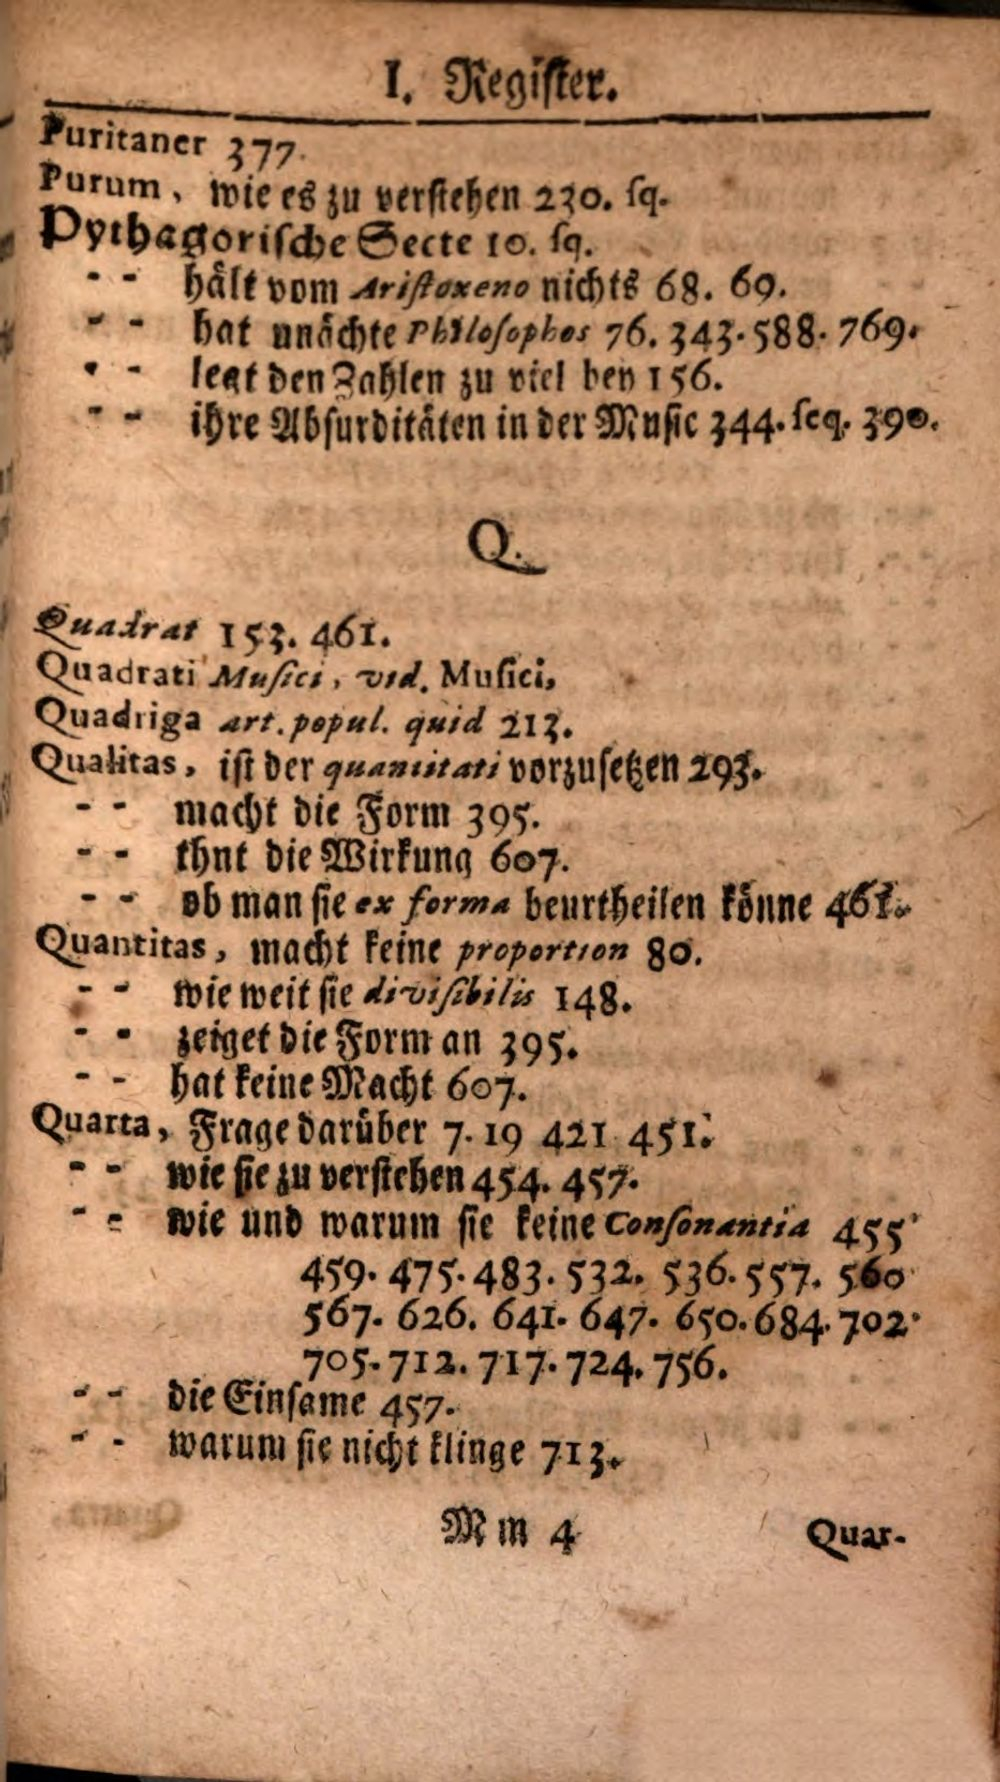 I. Register.
Puritaner 377.
Purum, wie es zu verstehen 230. sq.
Pythagorische Secte 10. sq.
- - hält vom Aristoxeno nichts 68. 69.
- - hat unächte Philosophos 76. 343. 588. 769.
- - legt den Zahlen zu viel bey 156.
- - ihre Absurditäten in der Music 344. seq. 390.
Q.
Quadrat 153. 461.
Quadrati Musici, vid. Musici,
Quadriga art. popul. quid 213.
Qualitas, ist der quantitati vorzusetzen 293.
- - macht die Form 395.
- - thnt die Wirkung 607.
- - ob man sie ex forma beurtheilen könne 461.
Quantitas, macht keine proportion 80.
- - wie weit sie divisibilis 148.
- - zeiget die Form an 395.
- - hat keine Macht 607.
Quarta, Frage darüber 7. 19 421 451.
- - wie sie zu verstehen 454. 457.
- - wie und warum sie keine Consonantia 455
459. 475. 483. 532. 536. 557. 560
567. 626. 641. 647. 650. 684. 702.
705. 712. 717. 724. 756.
- - die Einsame 457.
- - warum sie nicht klinge 713.
Mm 4
Quar-